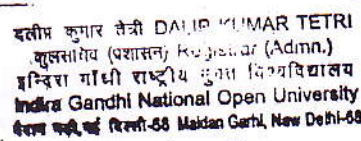 दलीप कुमार तेत्री DALIP KUMAR TETRI
कुलसचिव (प्रशासन) Registrar (Admn.)
इन्दिरा गाँधी राष्ट्रीय मुक्त विश्वविद्यालय
Indira Gandhi National Open University
मैदान गढ़ी, नई दिल्ली-68 Maidan Garhi, New Delhi-68